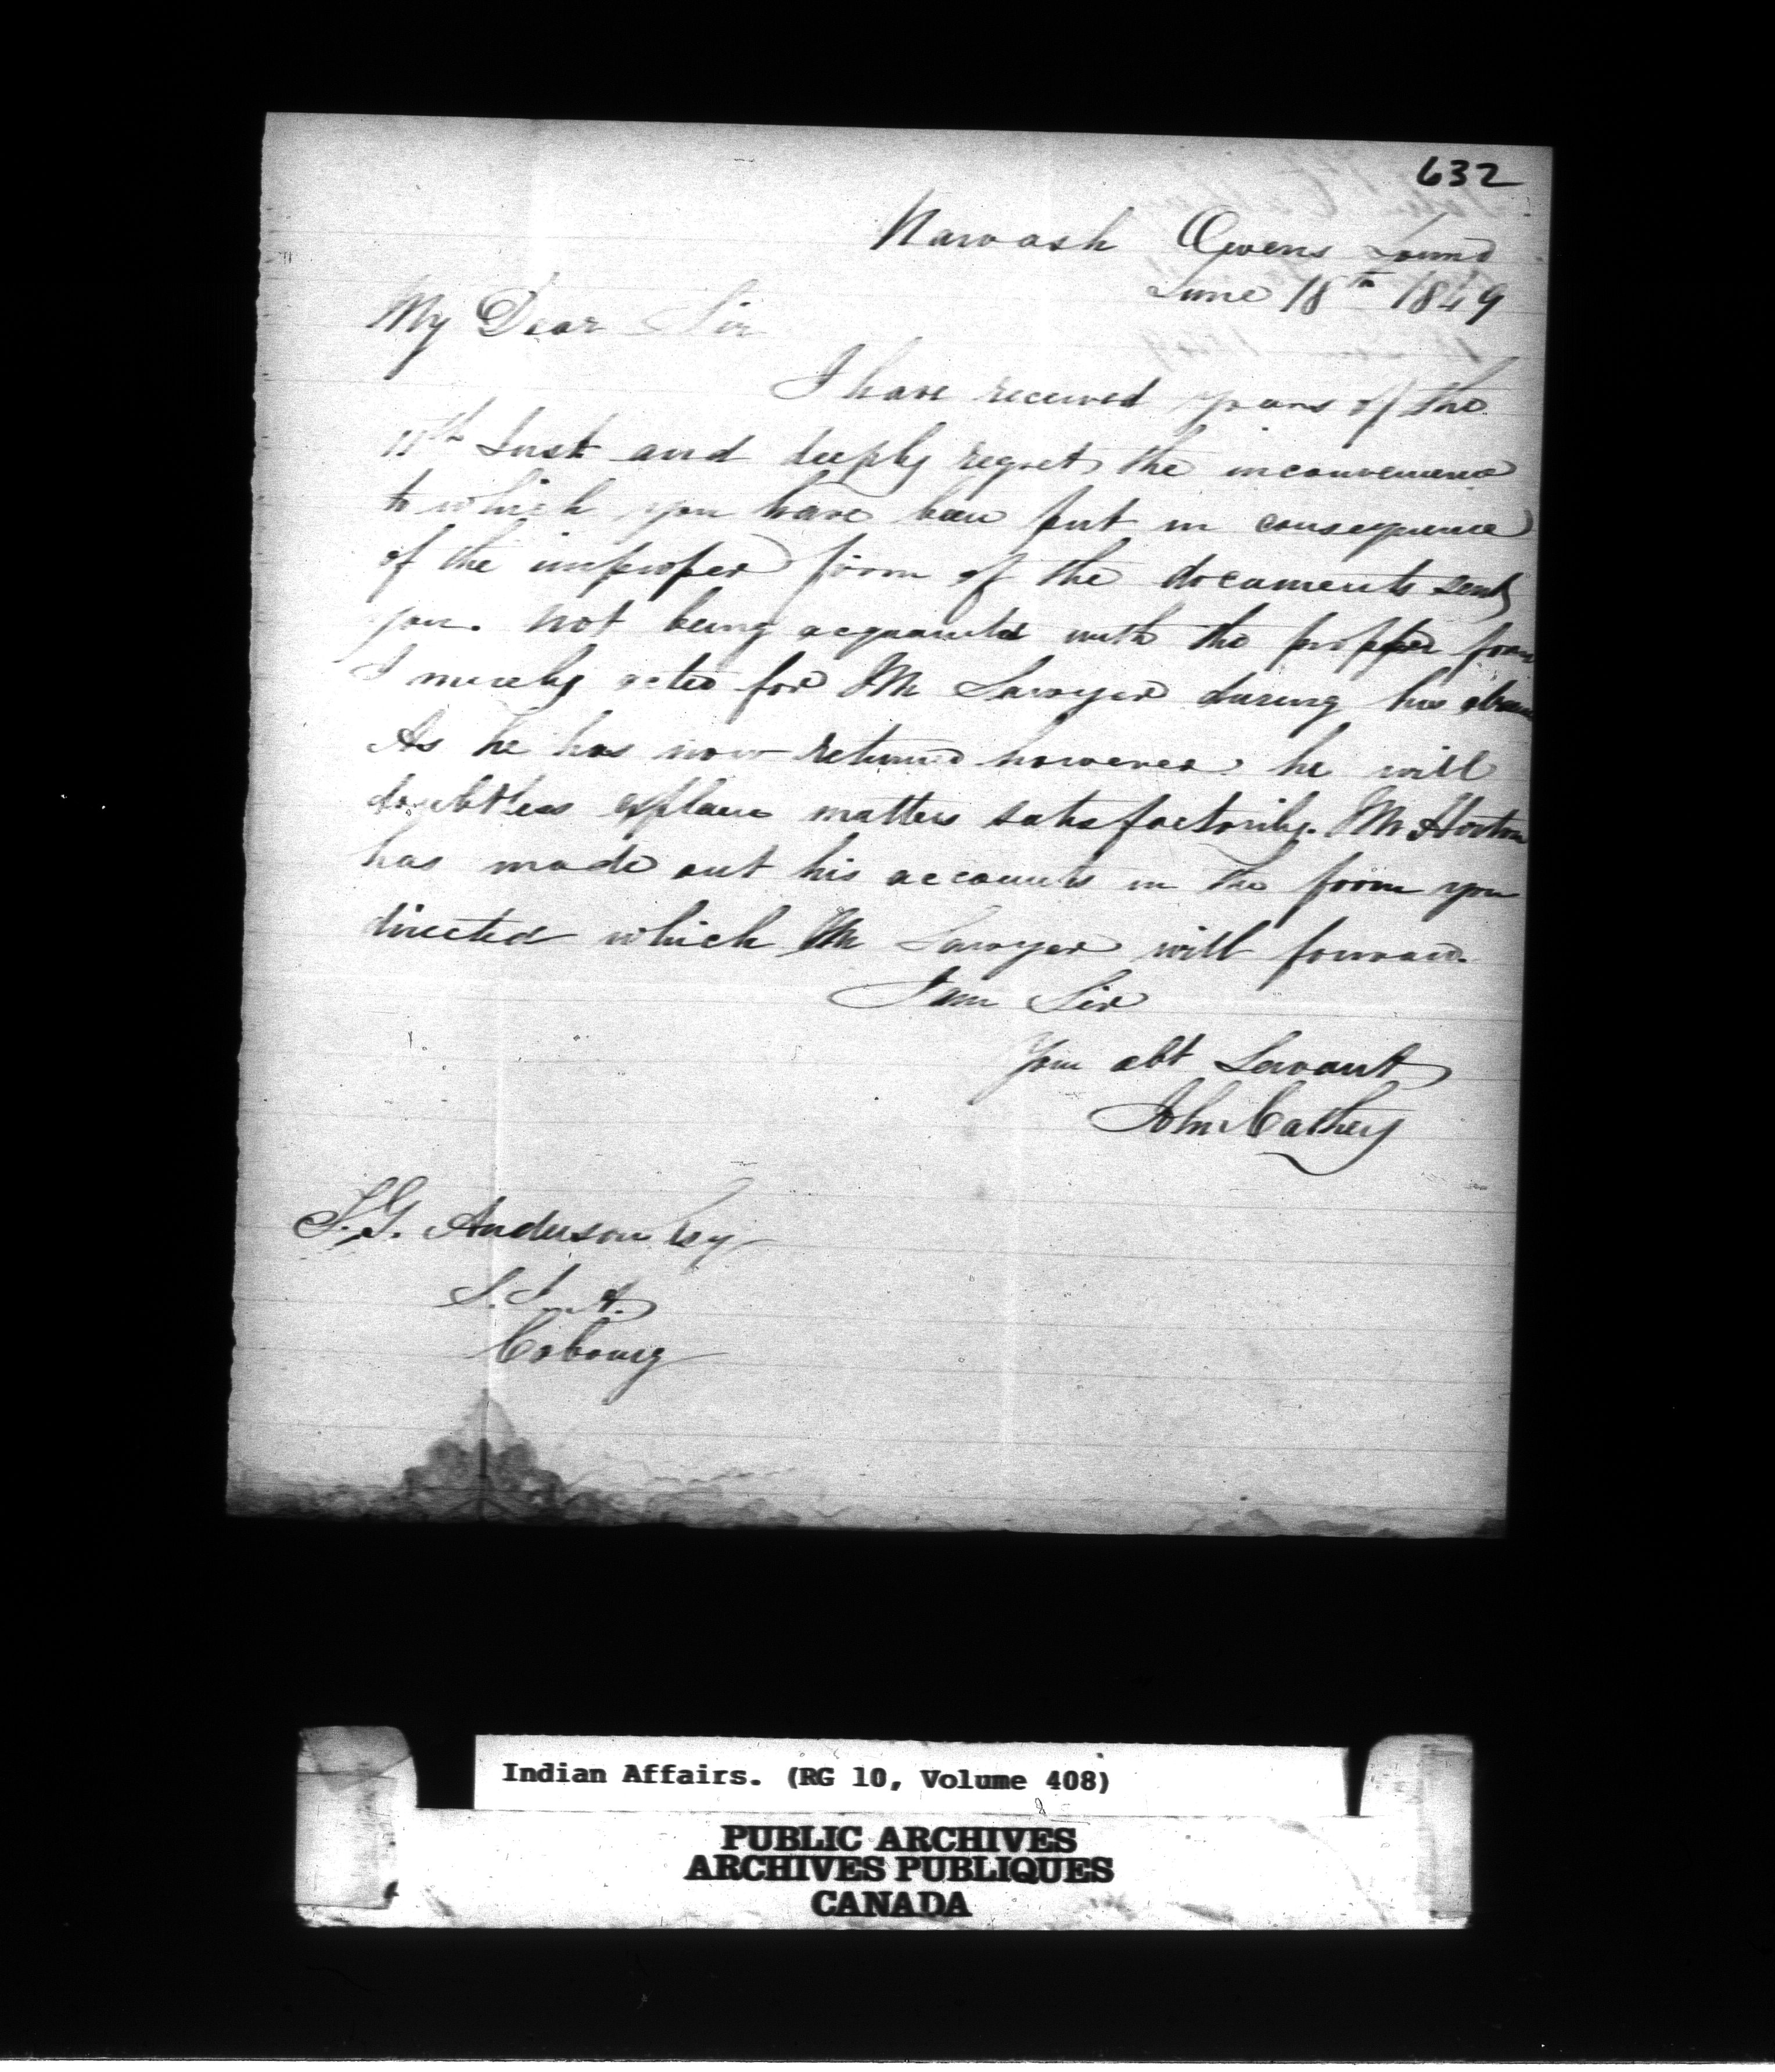 632
Nawash Owens Sound
June 18th 1849
My Dear Sir
I have received yours of the
11th Inst and deeply regret the inconvenience
to which you have been put in consequence
of the improper form of the documents sent
you. not being acquainted with the propper form
I merely acted for Mr Sawyer during his absence
As he has now returned however he will
doubtless explain matters satisfactorily. Mr Horton
has made out his accounts in the form you
directed which Mr Sawyer will forward.
I am Sir
Your obt Servant
John Cathey
T.G. Anderson Esq
S.I.A.
Cobourg
Indian Affairs. (RG 10, Volume 408)
PUBLIC ARCHIVES
ARCHIVES PUBLIQUES
CANADA